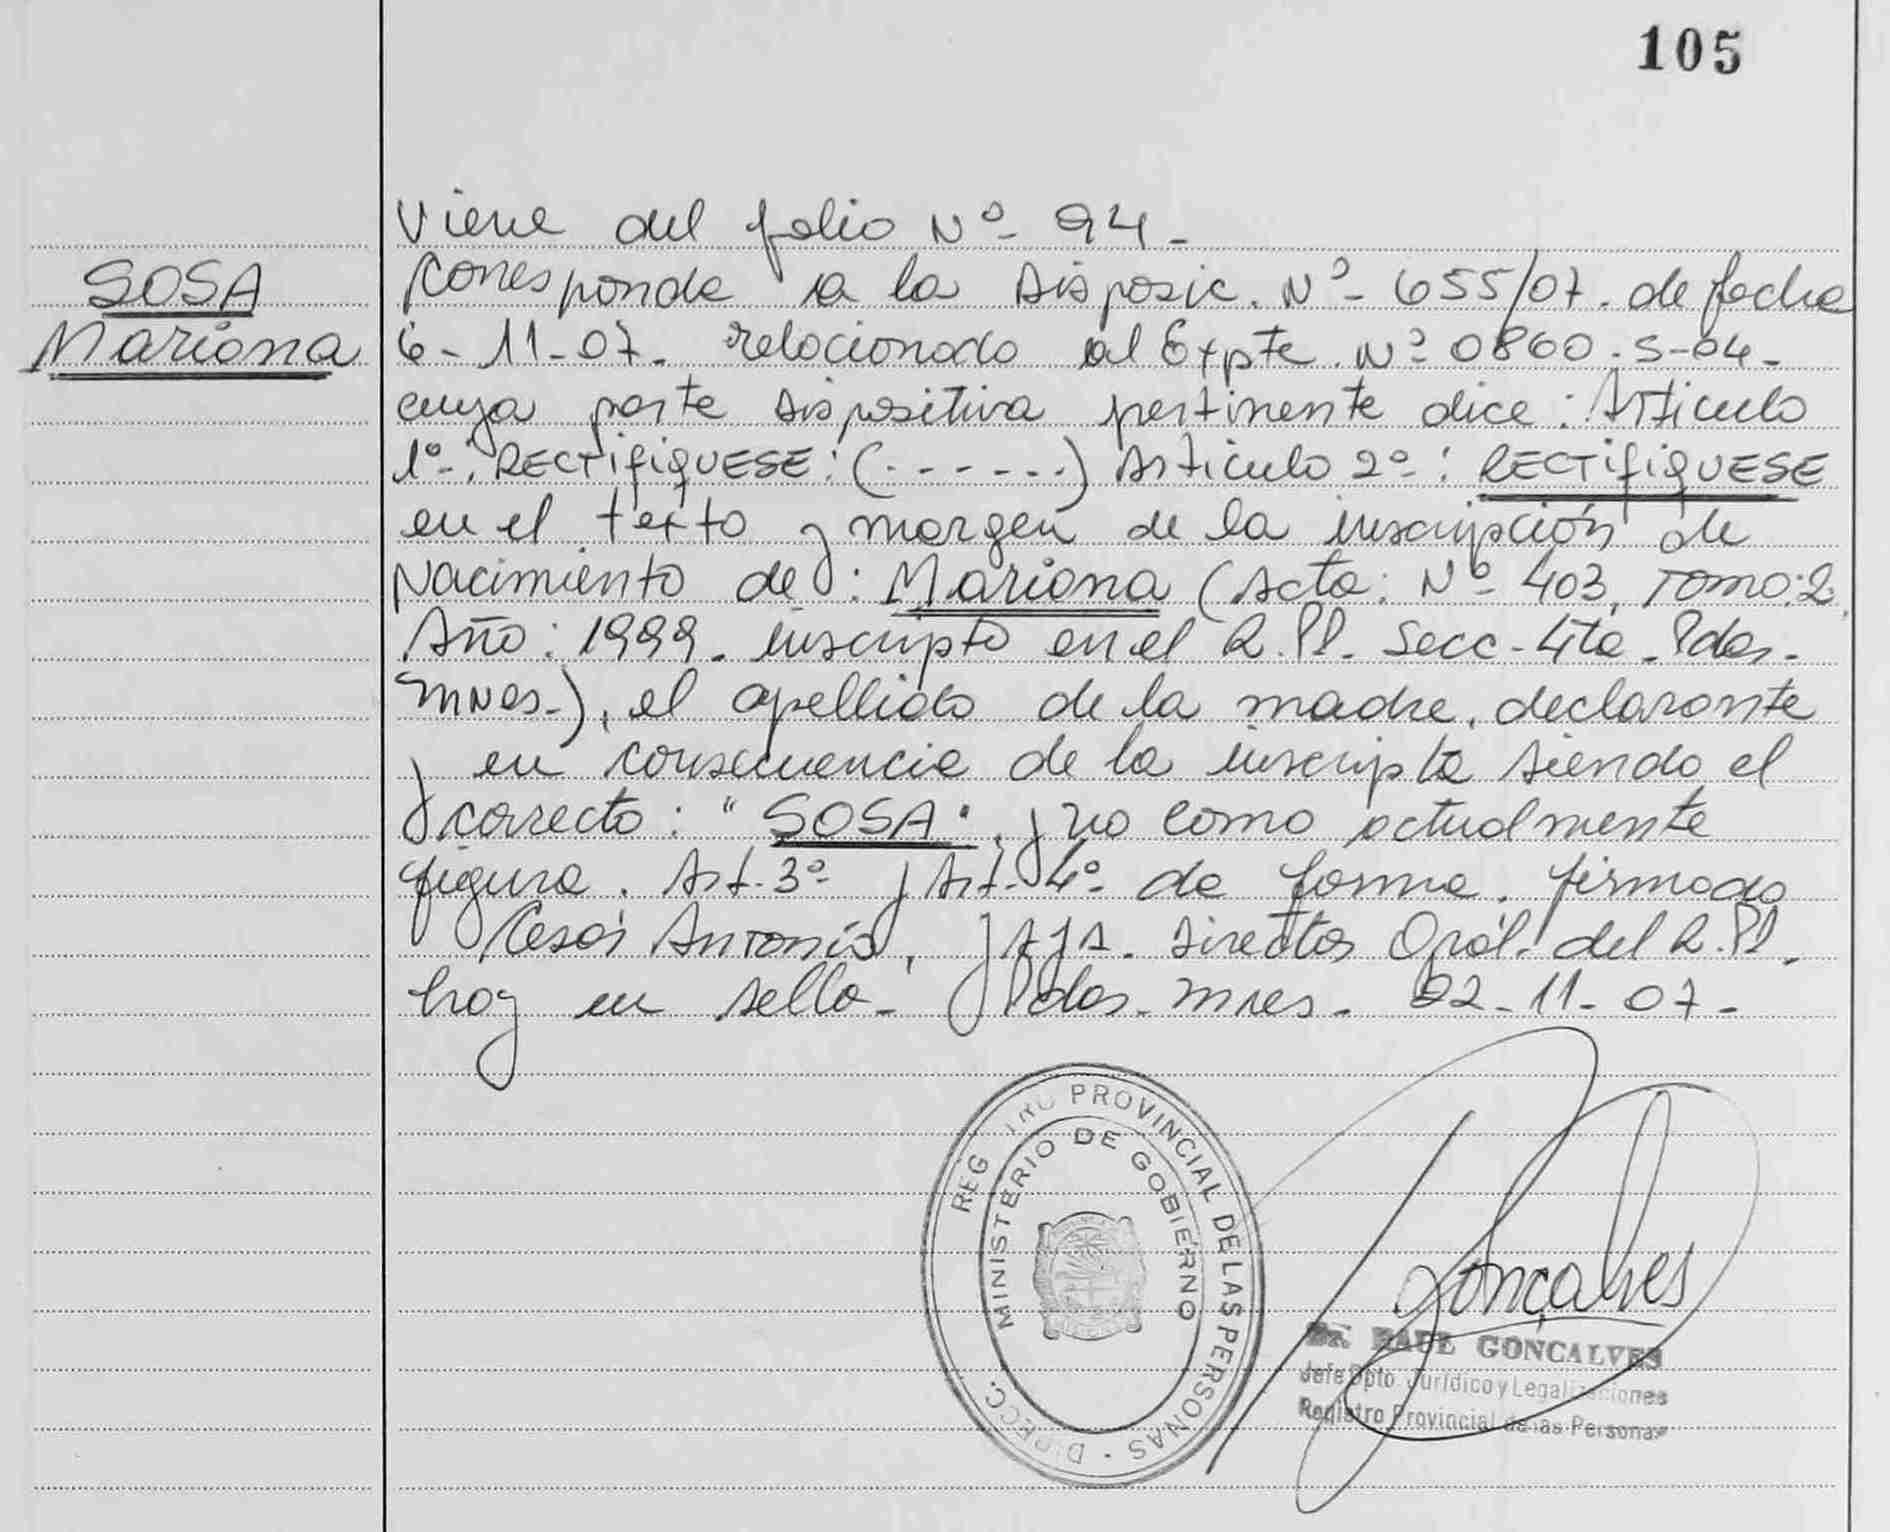 105
SOSA
Mariana
Viene del folio Nº- 94-
Corresponde a la Disposic. Nº- 655/07. de fecha
6-11-07. relacionado al Expte. Nº 0860.S-04-
cuya parte dispositiva pertinente dice: Artículo
1º-: RECTIFIQUESE: (.-----..) Artículo 2º-: RECTIFIQUESE
en el texto y margen de la inscripción de
Nacimiento de: Mariana (Acta: Nº- 403, Tomo:2,
Año: 1999. inscripto en el R.PP. Secc-4ta-Pdas.
Mnes-), el apellido de la madre, declarante
y en consecuencia de la inscripta siendo el
correcto: "SOSA", y no como actualmente
figura. Art. 3º- y Art-4º- de forma. firmado
Cesar Antonio, Director Gral. del R.PP.
hay un sello- Pdas. Mnes. 22-11-07-
DIRECC. REG TRO PROVINCIAL DE LAS PERSONAS
MINISTERIO DE GOBIERNO
Gonçalves
Dr. RAUL GONÇALVES
Jefe Dpto. Jurídico y Legalizaciones
Registro Provincial de las Personas